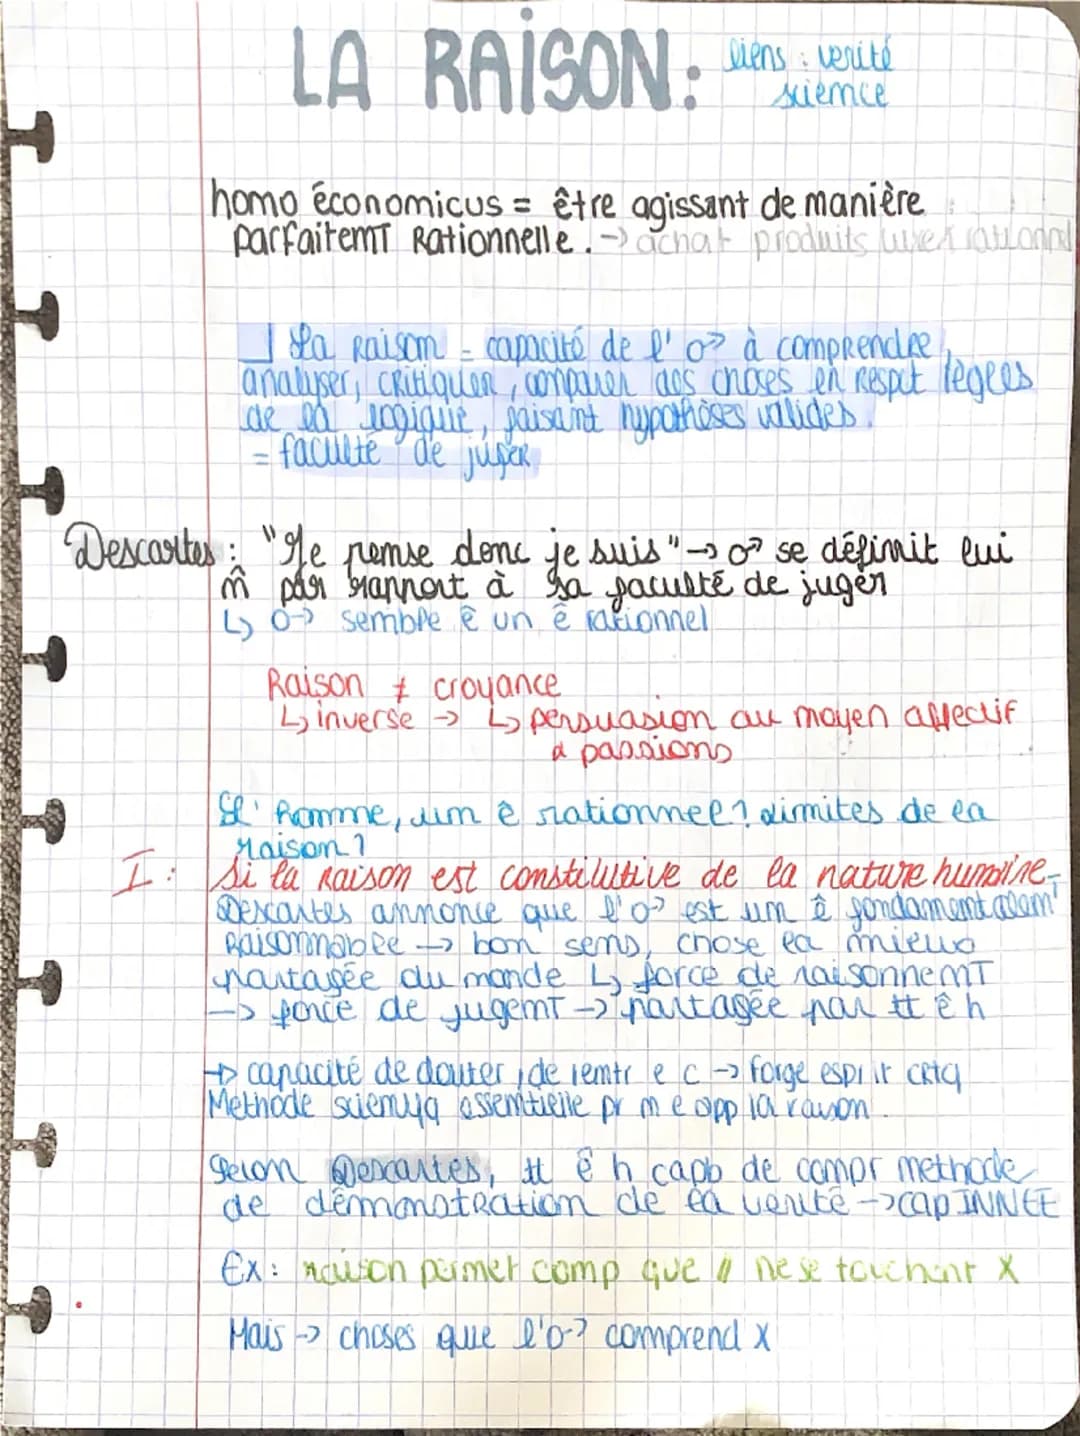 LA RAISON:
liens : verité
science
homo économicus = être agissant de manière
parfaitemT Rationnelle. → achat produits luxe
La Raison = capacité de l'♂ à comprendre,
analyser, critiquer, comparer des choses en respct
de la logique, faisant hypothèses valides.
= faculté de juger
Descartes : "Je pense donc je suis" → ♂ se définit lui
m̂ par rapport à sa faculté de juger
↳ ♂ semble ê un ê rationnel
Raison ≠ croyance
↳ inverse → ↳ persuasion au moyen affectif
& passions
L'homme, un ê rationnel? Limites de la
raison?
I: Si la Raison est constitutive de la nature humaine,
Descartes annonce que l'♂ est un ê fondamentalemt
Raisonnable → bon sens, chose la mieux
partagée du monde ↳ force de raisonnemT
→ force de jugemT → partagée par tt ê h
→ capacité de douter, de → forge esprit crtq
Méthode essentielle pr la raison.
Selon Descartes, tt ê h capb de compr methode
de démonstration de la vérité → cap INNÉE
Ex: raison permet comp que // ne se touchent X
Mais → choses que l'♂ comprend X